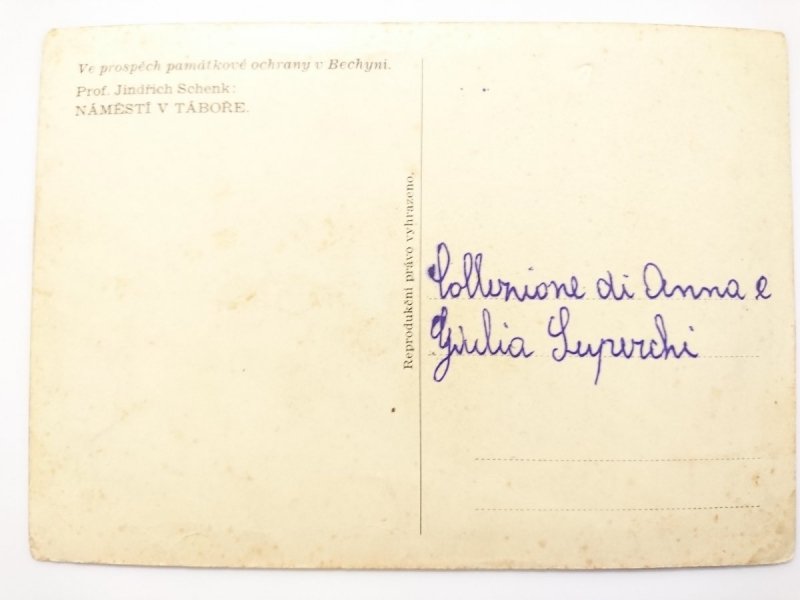 Ve prospěch památkové ochrany v Bechyni.
Prof. Jindřich Schenk:
NÁMĚSTÍ V TÁBOŘE.
Reprodukční právo vyhrazeno.
Collezione di Anna e
Giulia Luperchi